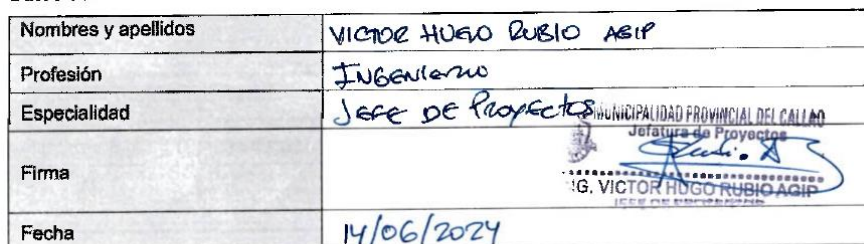 Nombres y apellidos VICTOR HUGO RUBIO AGIP
Profesión INGENIERO
Especialidad JEFE DE PROYECTOS
MUNICIPALIDAD PROVINCIAL DEL CALLAO
Jefatura de Proyectos
Firma
ING. VICTOR HUGO RUBIO AGIP
JEFE DE PROYECTOS
Fecha 14/06/2024